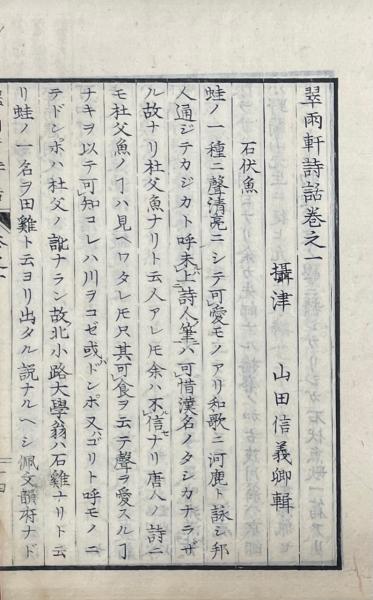 翠雨軒詩話巻之一
攝津 山田信義卿輯
石伏魚
蛙ノ一種ニ聲清亮ニシテ可愛モノアリ和歌ニ河鹿ト詠シ邦
人通ジテカジカト呼未上詩人筆ハ可惜漢名ノタシカナラザ
ル故ナリ杜父魚ナリト云人アレ𪜈余ハ不信ナリ唐人ノ詩ニ
モ杜父魚ノヿハ見ヘワタレ𪜈只其可食ヲ云テ聲ヲ愛スルヿ
ナキヲ以テ可知コレハ川ヲコゼ或ドンポ又ゴリト呼モノニ
テドンポハ杜父ノ訛ナラン故北小路大學翁ハ石雞ナリト云
リ蛙ノ一名ヲ田雞ト云ヨリ出タル説ナルヘシ佩文韻府ナド